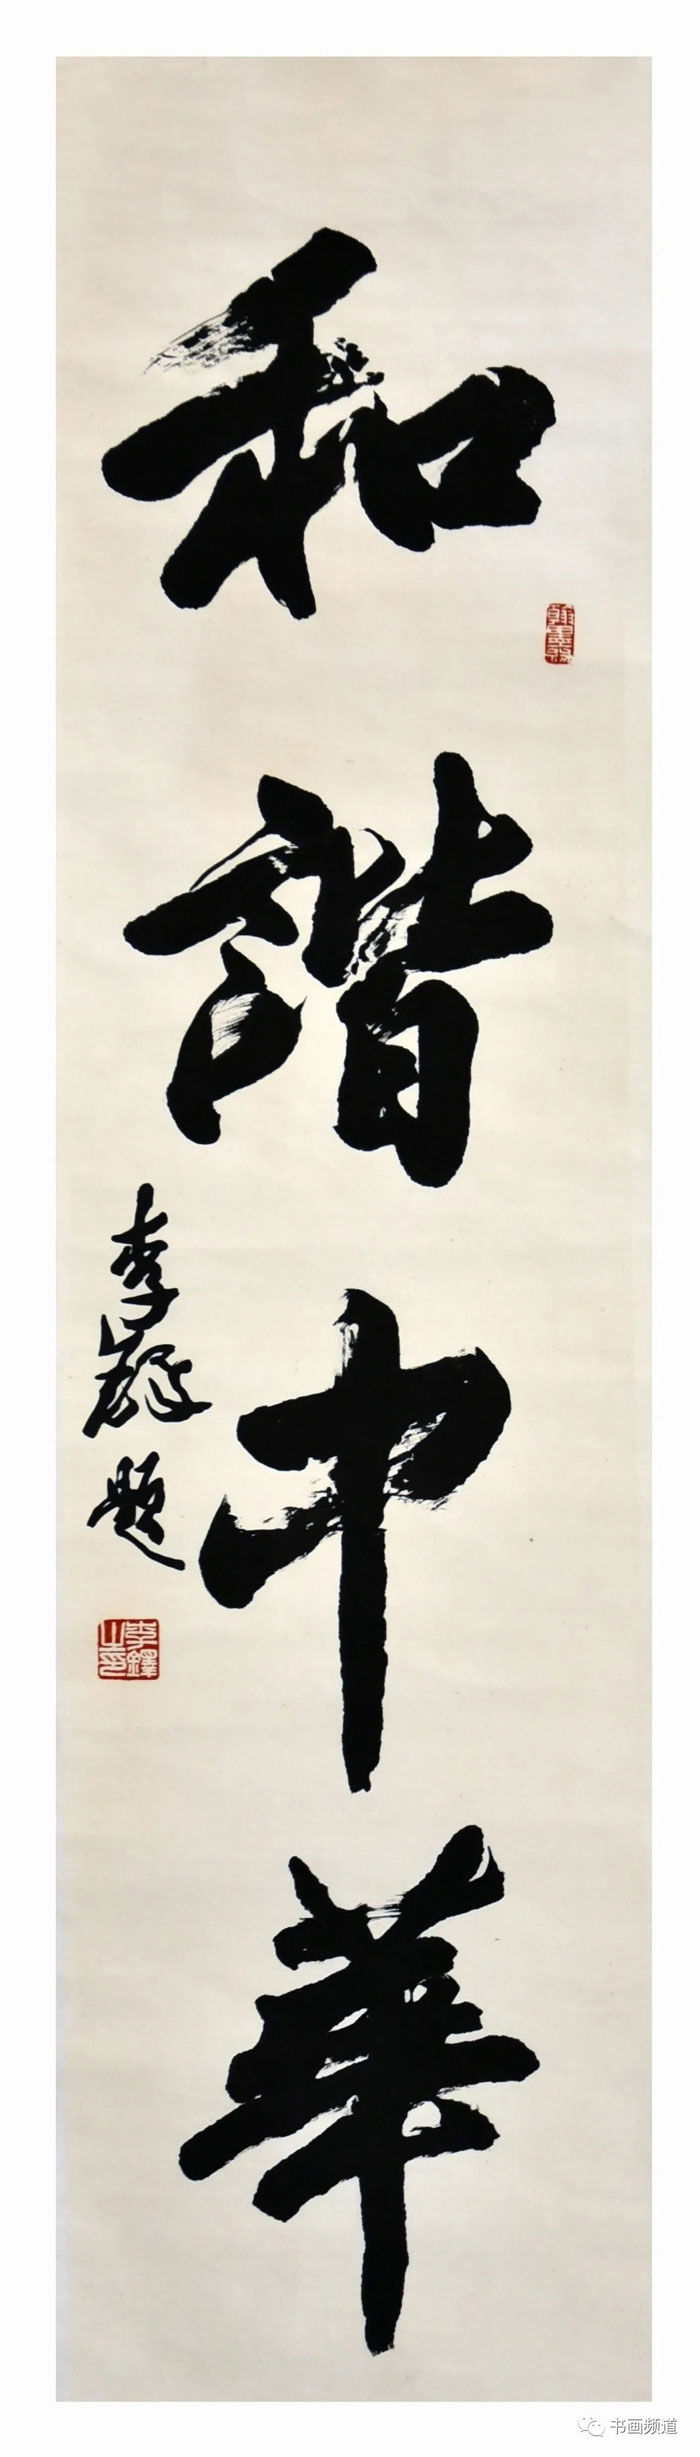 和諧中華
李鐸題
李鐸之印
书画频道